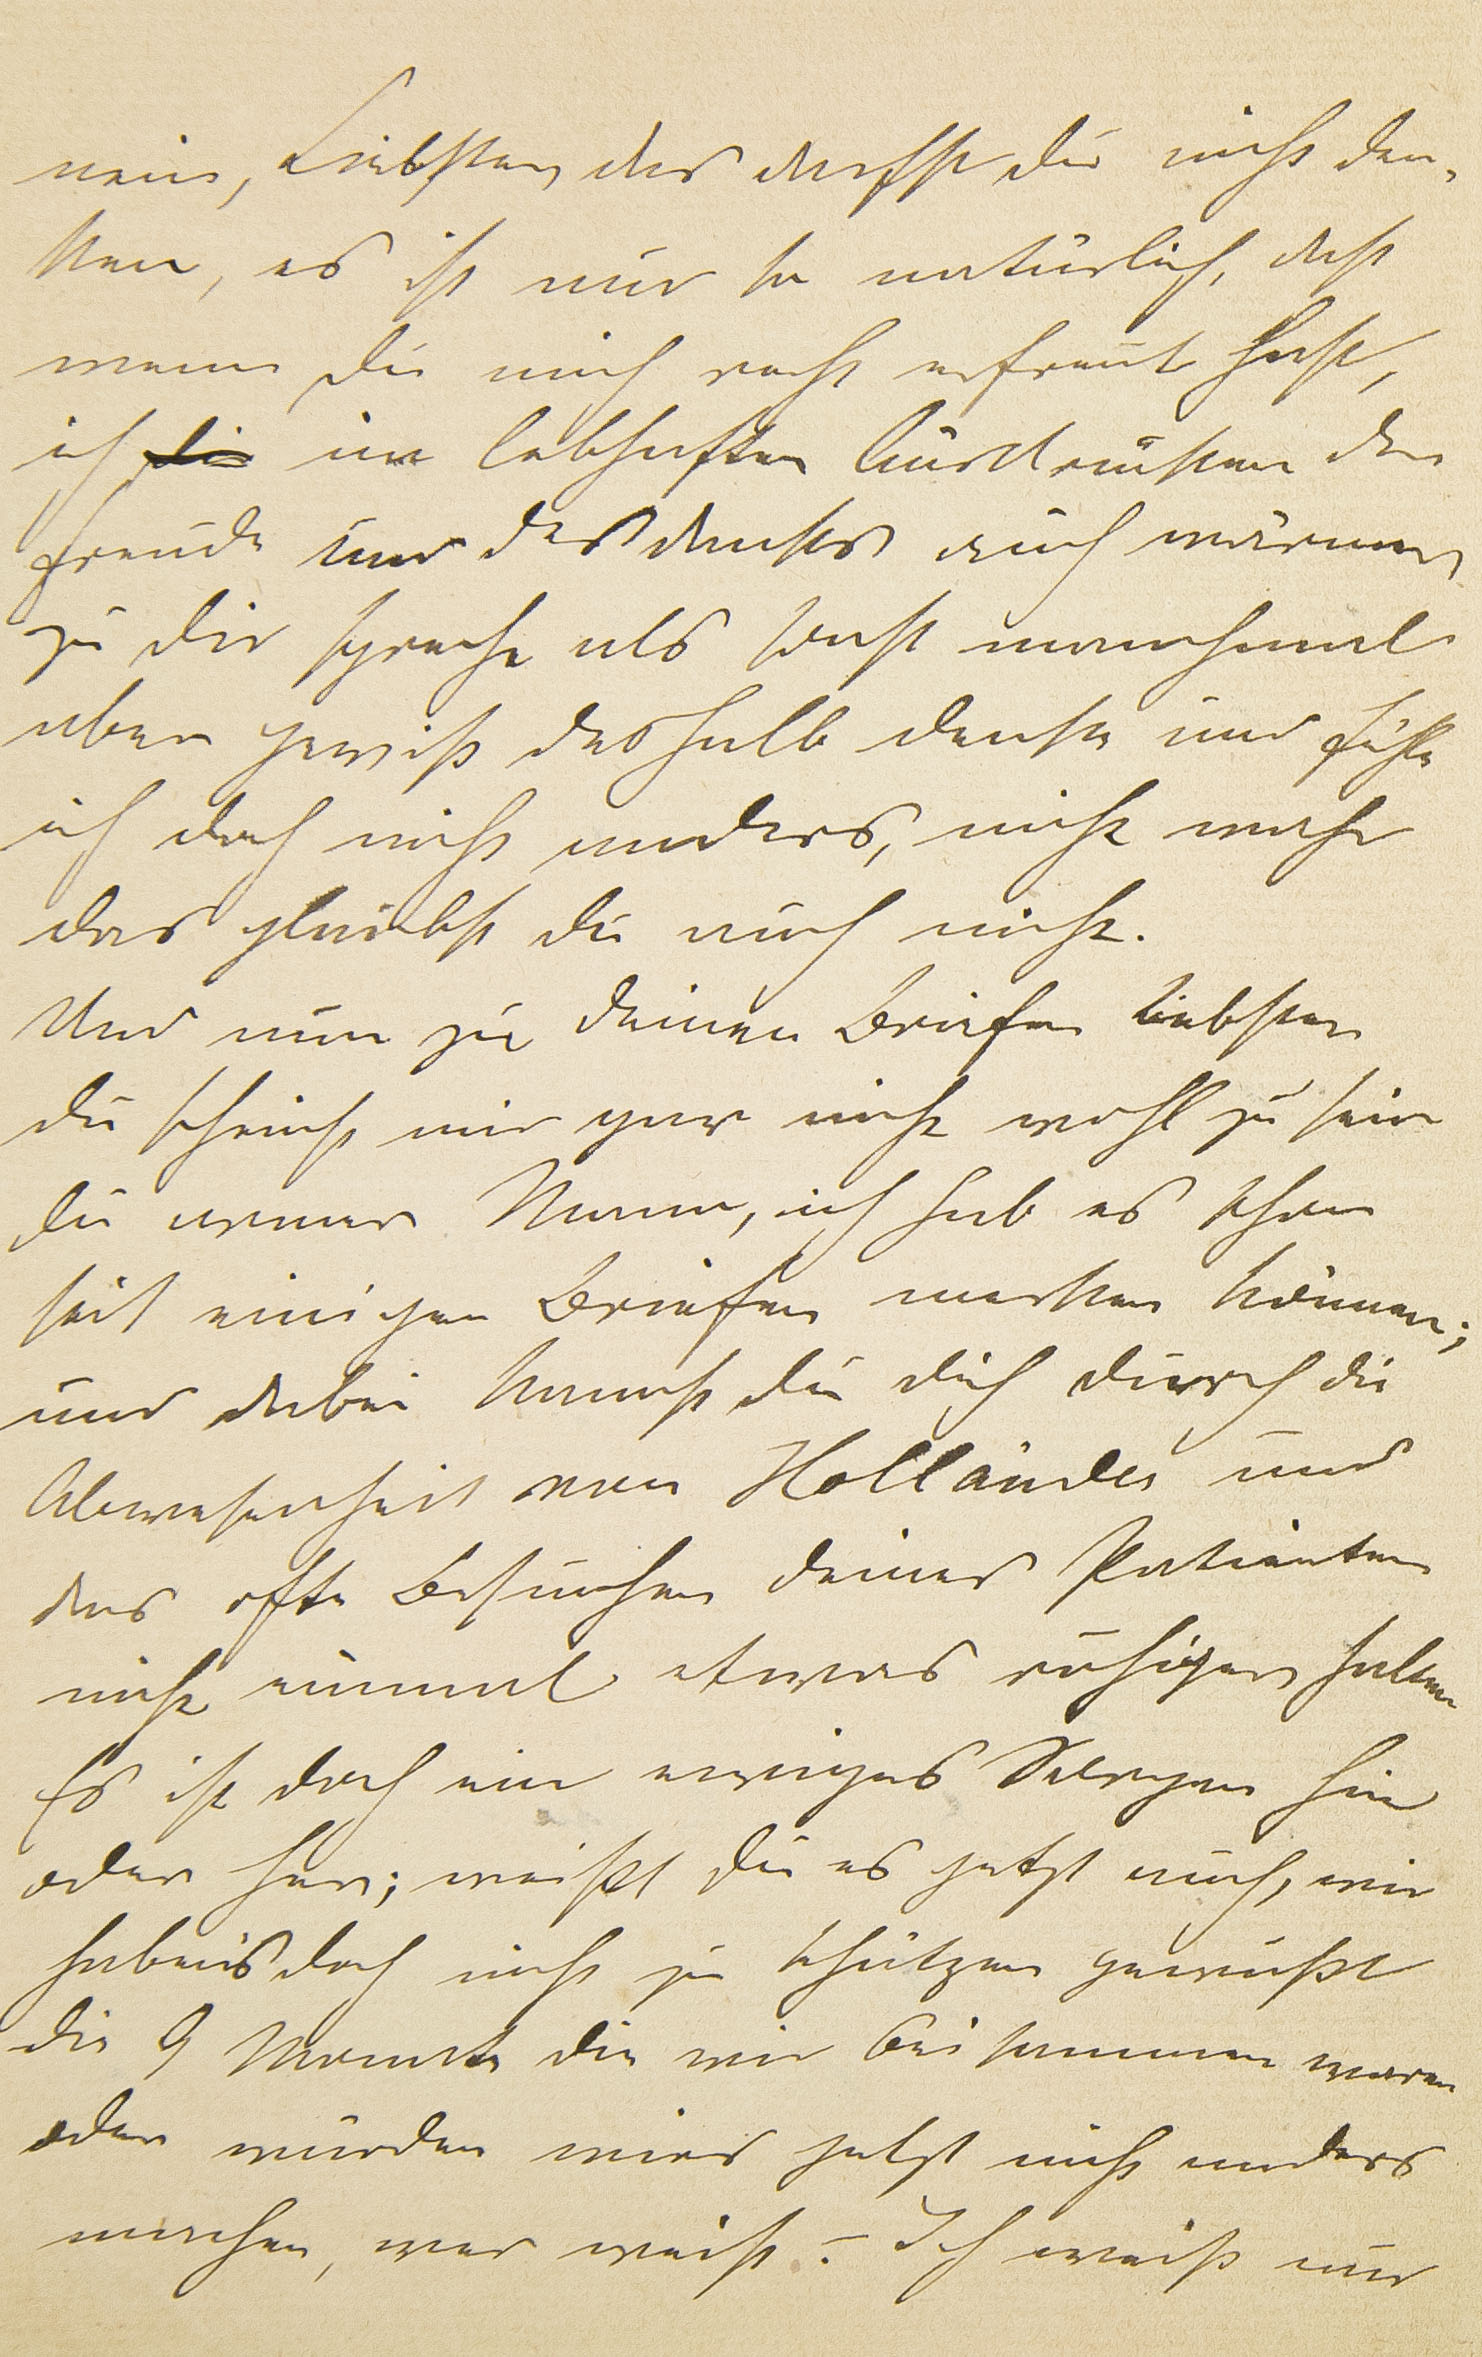 nein, Liebster, das darfst du nicht den-
ken, es ist nur so natürlich, daß
wenn du mich recht erfreut hast,
ich die im lebhaften Ausdrücken der
Freude und des Dankes auch wärmer
zu dir spreche als sonst manchmal
aber gewiß deshalb denke und fühle
ich doch nicht anders, nicht wahr
das glaubst du auch nicht.
Und nun zu deinen Briefen Liebster
du scheinst mir gar nicht wohl zu sein
du armer Mann, ich hab es schon
seit einigen Briefen merken können;
und dabei kannst du dich durch die
Abwesenheit von Holländer und
das ofte Besuchen deines Patienten
nicht einmal etwas ruhiger halten
Es ist doch ein ewiges Sorgen hin
oder her; weißt du es jetzt auch, wir
habens doch nicht zu schätzen gewußt
die 9 Monate die wir beisammen waren
oder würden wirs jetzt nicht anders
machen, wer weiß? Ich weiß nur